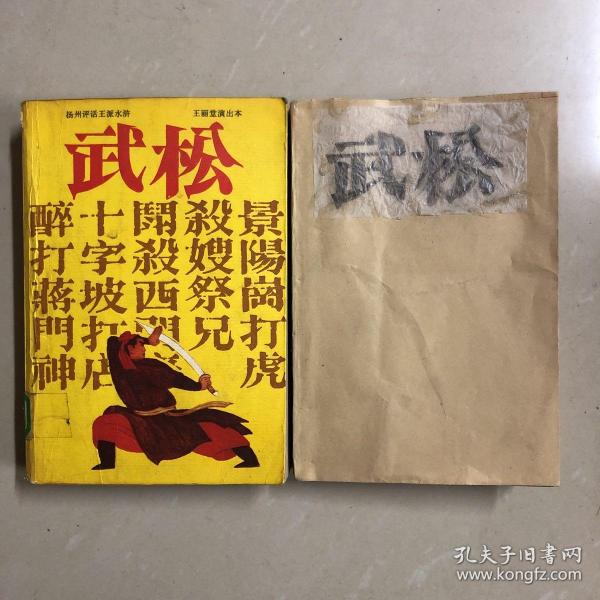 扬州评话王派水浒
王丽堂演出本
武松
景陽崗打虎
殺嫂祭兄
鬪殺西門
十字坡打店
醉打蔣門神
武松
孔夫子旧书网
www.kongfz.com